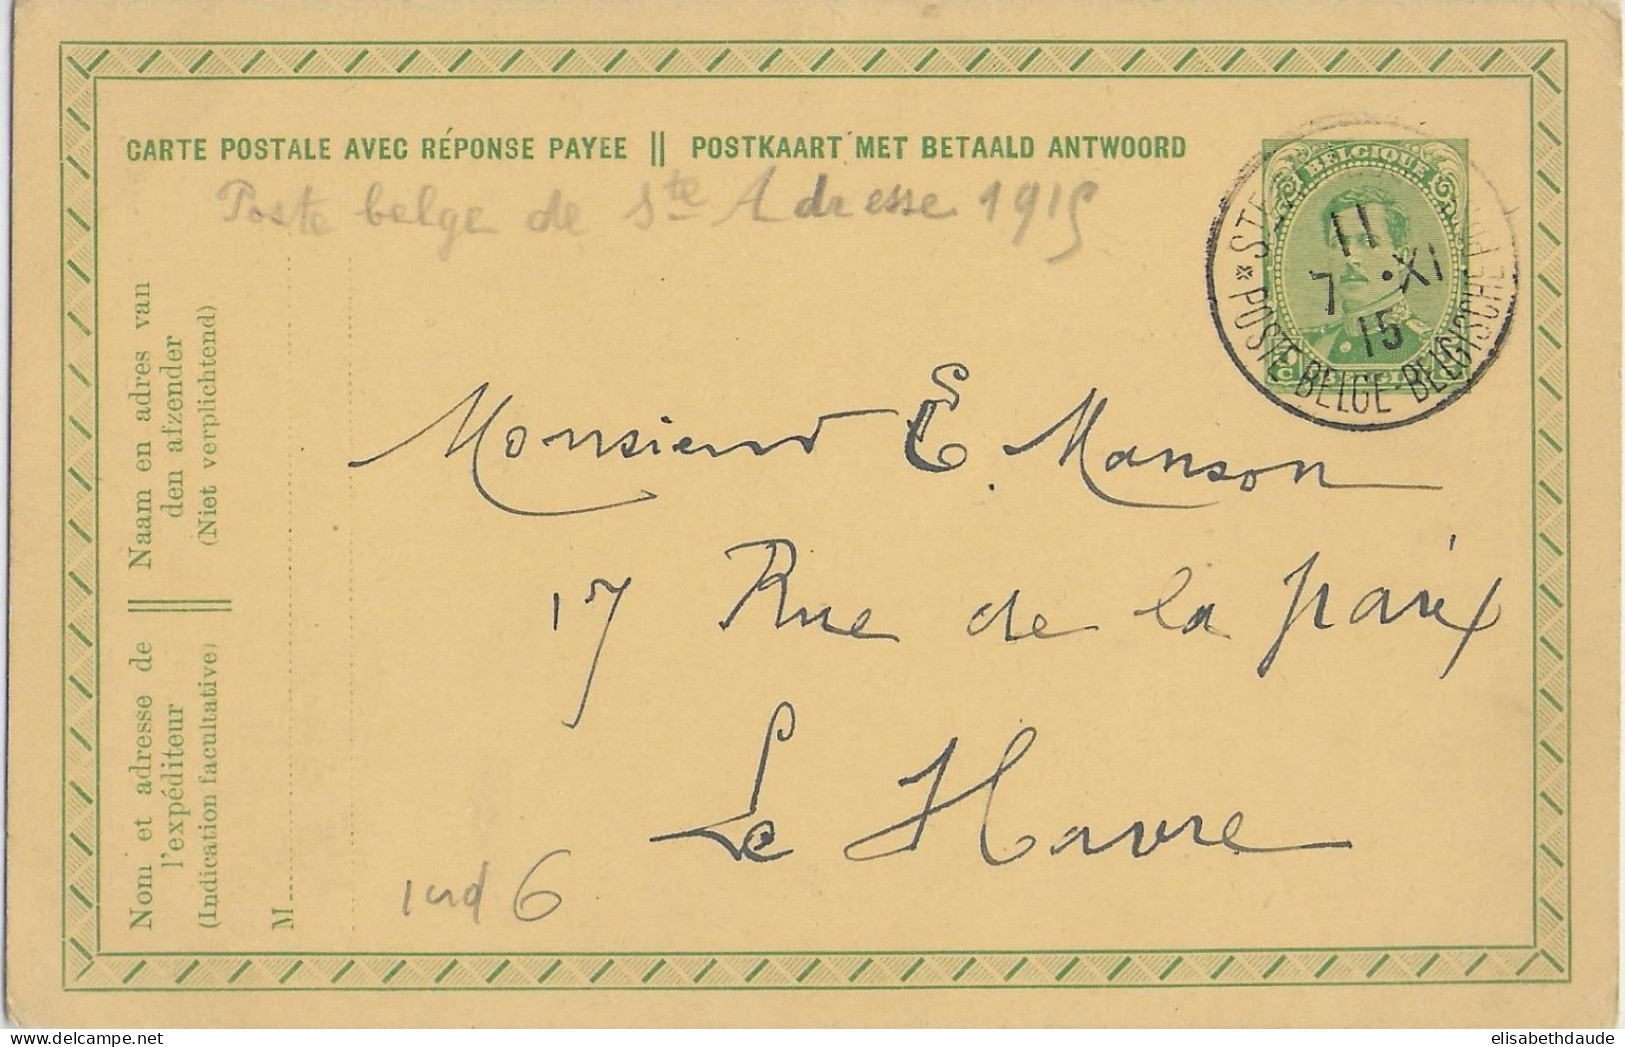 CARTE POSTALE AVEC RÉPONSE PAYEE || POSTKAART MET BETAALD ANTWOORD
Poste belge de Ste Adresse 1915
BELGIQUE
11
7 •XI
15
POSTE BELGE BELGISCHE
Naam en adres van
den afzender
(Niet verplichtend)
Nom et adresse de
l'expéditeur
(Indication facultative)
M
Monsieur E. Manson
17 Rue de la paix
Le Havre
6
elisabethdaude